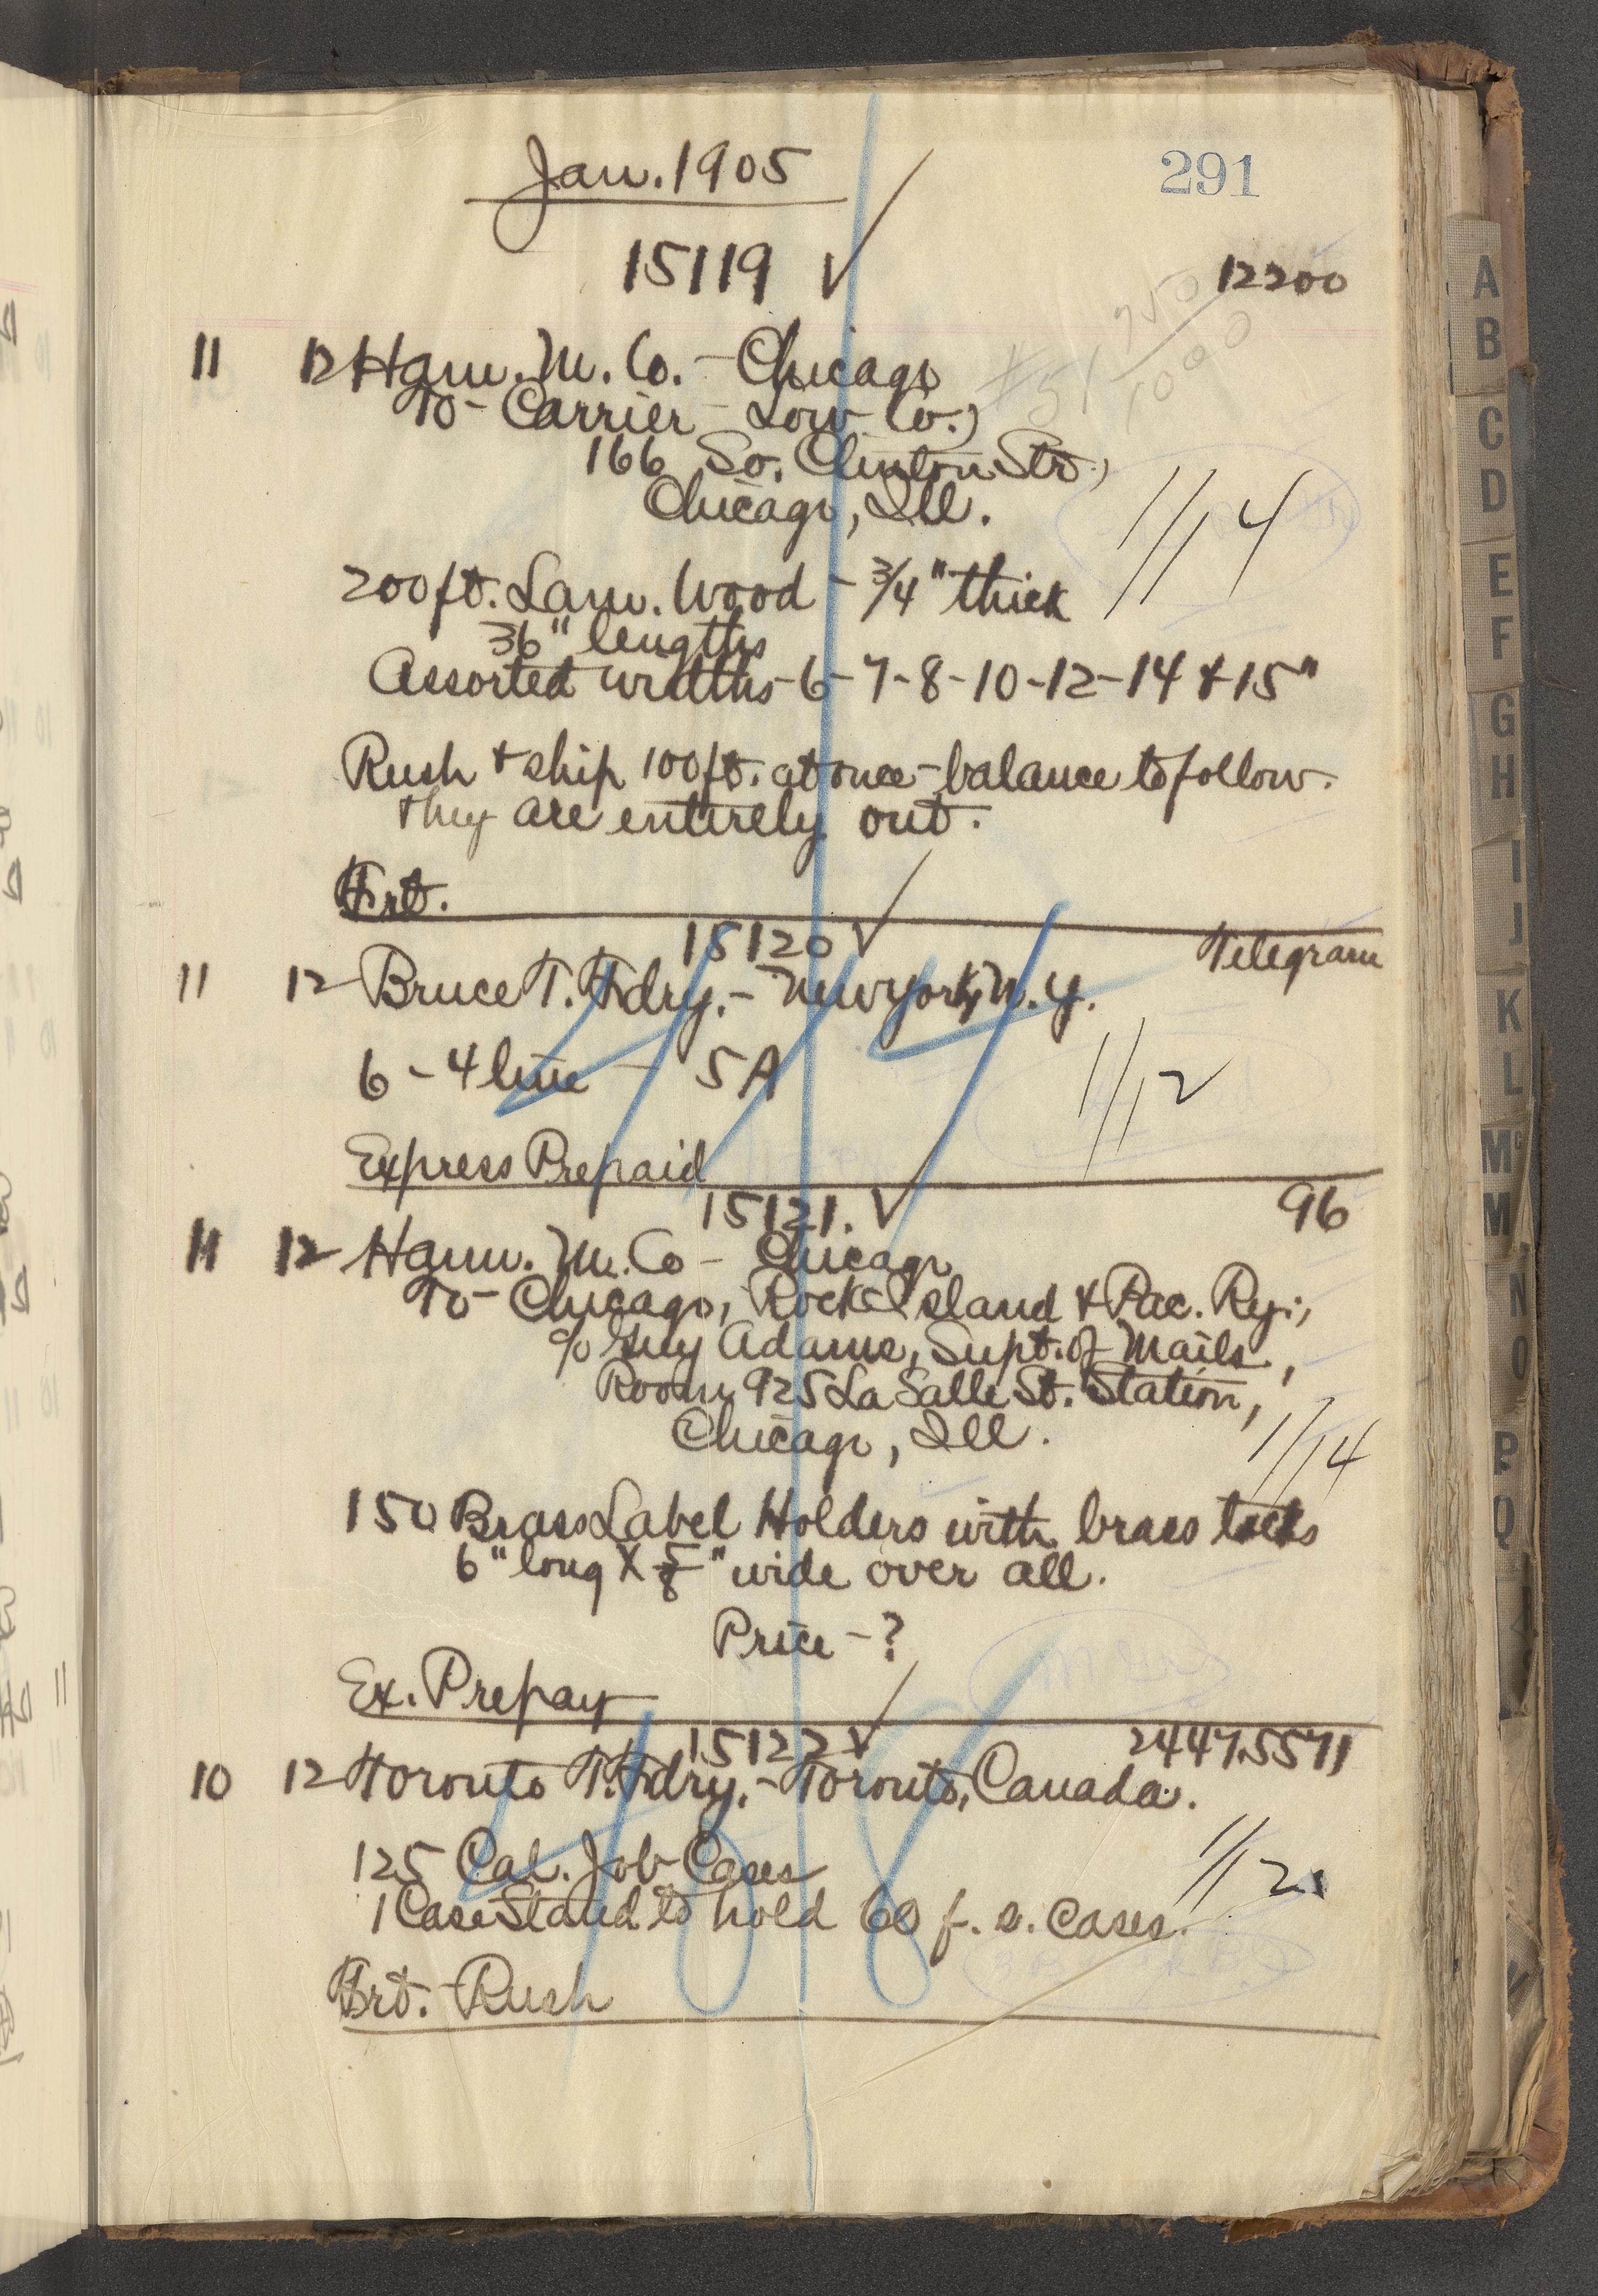 291
Jan. 1905
15119 ✓
12200
11 12 Ham. M. Co. - Chicago
To - Carrier - Low Co.,
166 So. Clinton Str.,
Chicago, Ill.
1/14
200 ft. Lam. Wood - 3/4" thick
36" lengths
Assorted widths - 6 - 7 - 8 - 10 - 12 - 14 & 15"
Rush & ship 100 ft. at once - balance to follow.
they are entirely out.
Frt.
15120 ✓
Telegram
11 12 Bruce T. Fdry. - New York, N.Y.
6 - 4 line - 5A
1/12
Express Prepaid
15121. ✓
96
11 12 Ham. M. Co - Chicago
To - Chicago, Rock Island & Pac. Ry.,
c/o Guy Adams, Supt. of Mails,
Room 925 La Salle St. Station,
Chicago, Ill.
1/14
150 Brass Label Holders with brass tacks
6" long X 5/8" wide over all.
Price - ?
Ex. Prepay
15122 ✓
10 12 Toronto T. Fdry. - Toronto, Canada.
125 Cal. Job Cases
1/12
1 Case Stand to hold 60 f. s. cases.
Frt. - Rush
A
B
C
D
E
F
G
H
I
J
K
L
Mc
M
N
O
P
Q